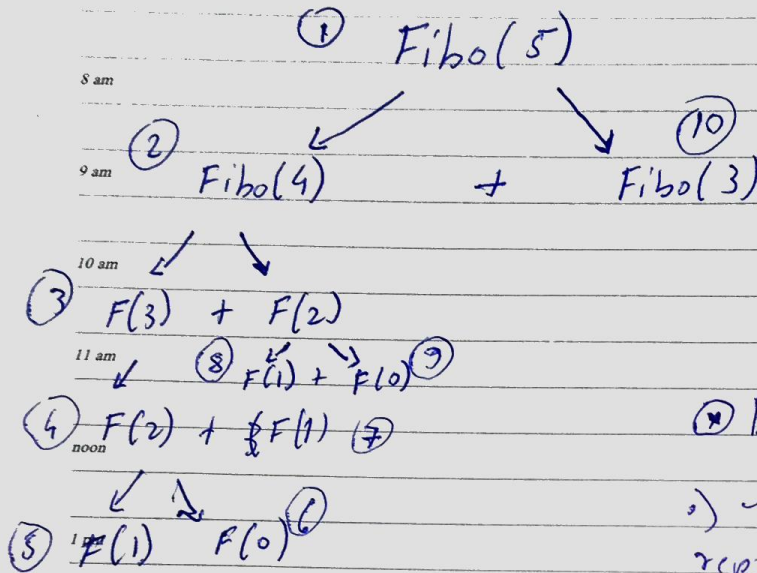 ① Fibo(5)
8 am
② ⑩
9 am Fibo(4) + Fibo(3)
10 am
③ F(3) + F(2)
11 am ⑧ F(1) + F(0) ⑨
④ F(2) + F(1) ⑦
noon
⑤ F(1) F(0) ⑥
1